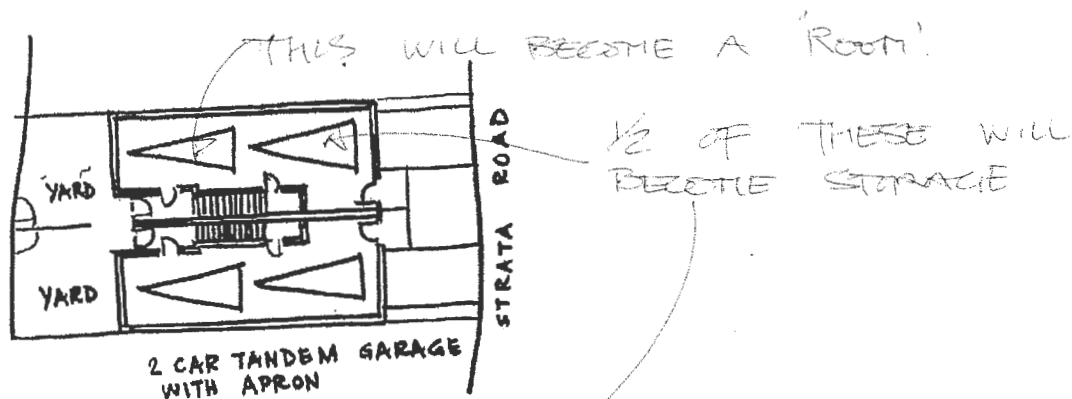 THIS WILL BECOME A 'ROOM'.
1/2 OF THESE WILL
BECOME STORAGE
YARD
YARD
STRATA ROAD
2 CAR TANDEM GARAGE
WITH APRON